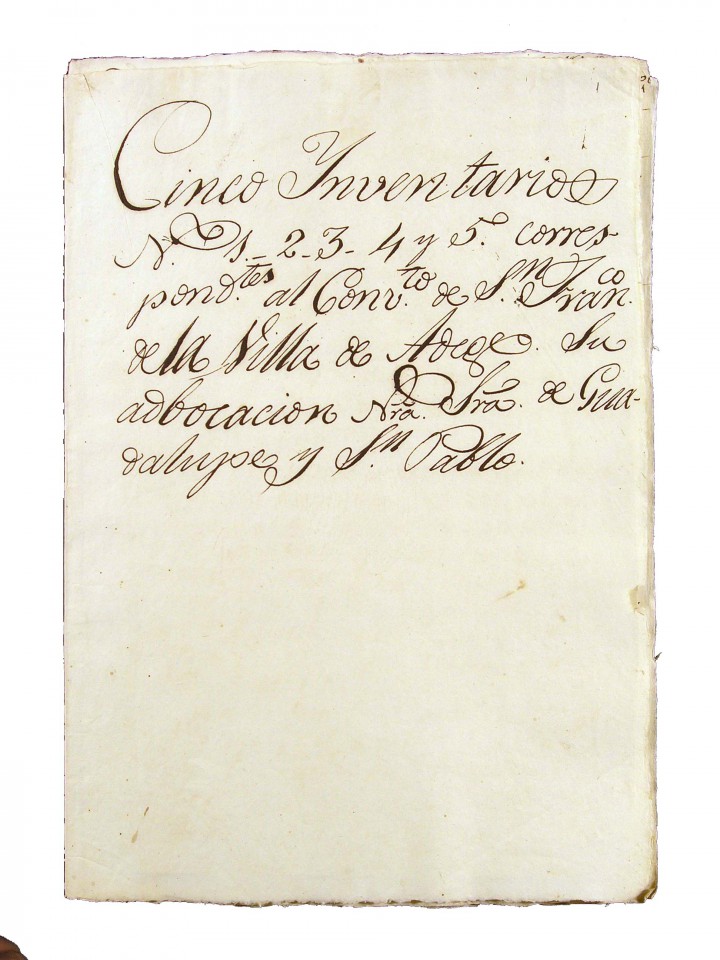 Cinco Ynventarios
N.º 1.-2-3-4 y 5.º corres-
pond.tes al Conv.to de S.n Fran.co
de la Villa de Adege. Su
adbocacion Nrã. Srã. de Gua-
dalupe y S.n Pablo.